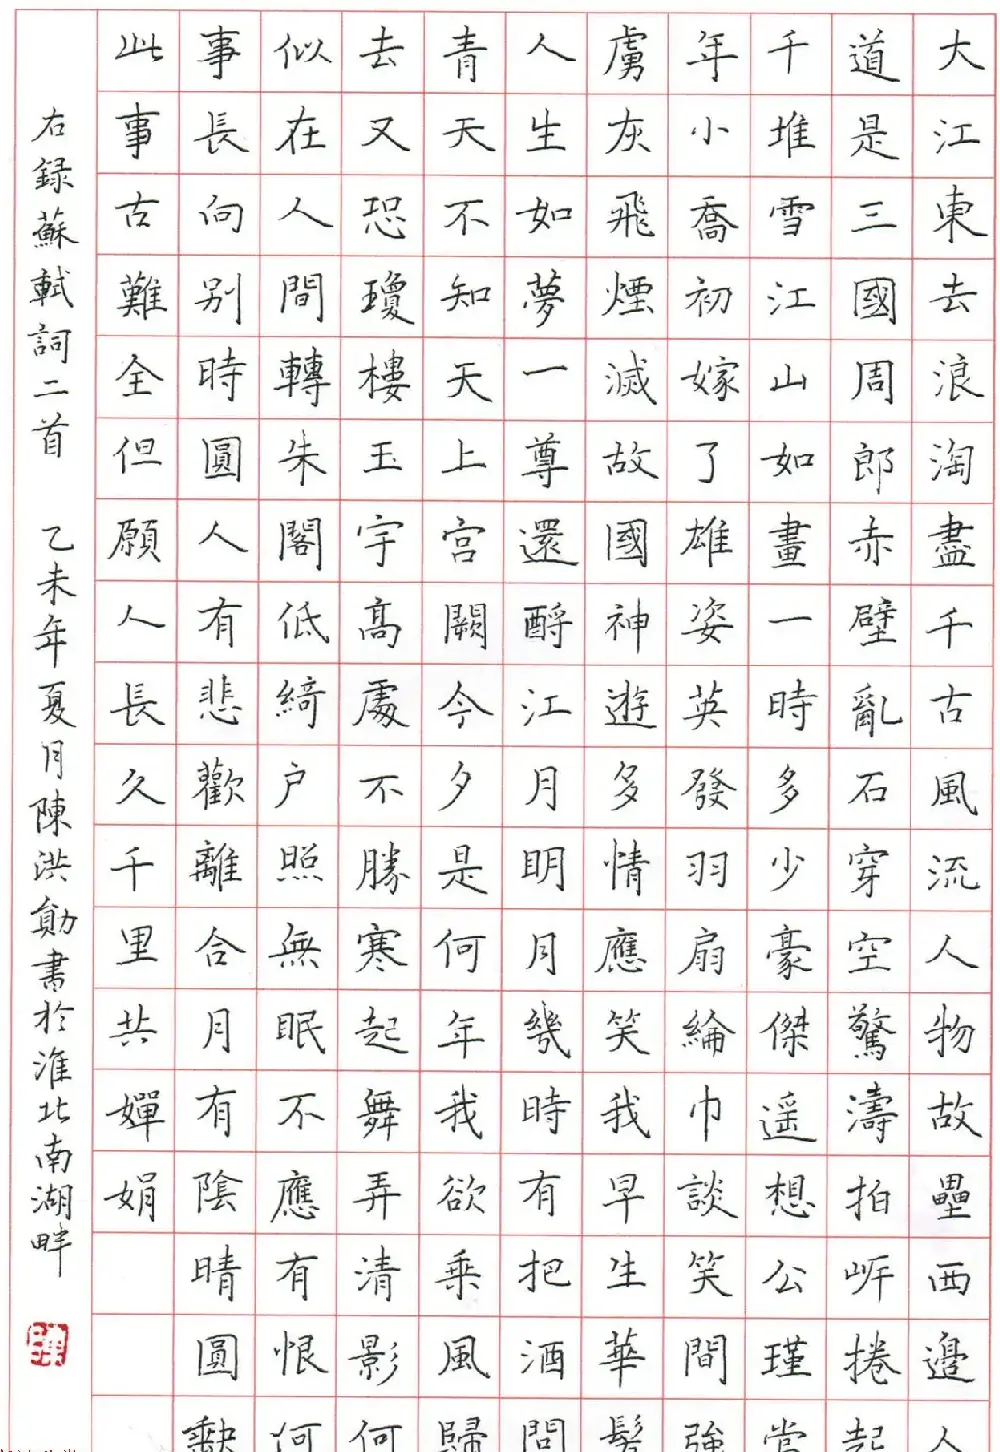 大江東去浪淘盡千古風流人物故壘西邊人
道是三國周郎赤壁亂石穿空驚濤拍岸捲起
千堆雪江山如畫一時多少豪傑遥想公瑾當
年小喬初嫁了雄姿英發羽扇綸巾談笑間強
虜灰飛煙滅故國神遊多情應笑我早生華髮
人生如夢一尊還酹江月明月幾時有把酒問
青天不知天上宮闕今夕是何年我欲乘風歸
去又恐瓊樓玉宇高處不勝寒起舞弄清影何
似在人間轉朱閣低綺户照無眠不應有恨何
事長向别時圓人有悲歡離合月有陰晴圓缺
此事古難全但願人長久千里共嬋娟
右録蘇軾詞二首 乙未年夏月陳洪勛書於淮北南湖畔
陳